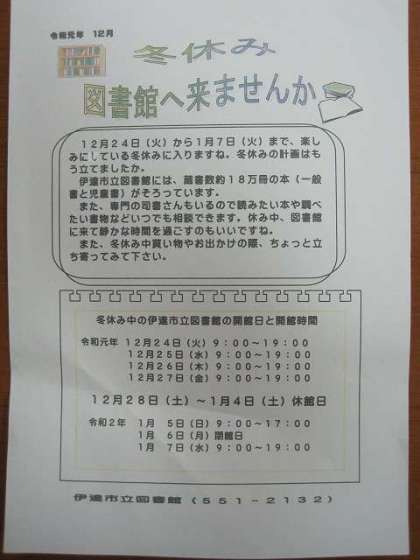 令和元年　12月
冬休み
図書館へ来ませんか
１２月２４日（火）から１月７日（火）まで、楽し
みにしている冬休みに入りますね。冬休みの計画はも
う立てましたか。
伊達市立図書館には、蔵書数約１８万冊の本（一般
書と児童書）がそろっています。
また、専門の司書さんもいるので読みたい本や調べ
たい書物などいつでも相談できます。休み中、図書館
に来て静かな時間を過ごすのもいいですね。
また、冬休み中買い物やお出かけの際、ちょっと立
ち寄ってみて下さい。
冬休み中の伊達市立図書館の開館日と開館時間
令和元年　１２月２４日（火）９：００～１９：００
１２月２５日（水）９：００～１９：００
１２月２６日（木）９：００～１９：００
１２月２７日（金）９：００～１９：００
１２月２８日（土）～１月４日（土）休館日
令和２年　１月　５日（日）９：００～１７：００
１月　６日（月）閉館日
１月　７日（水）９：００～１９：００
伊達市立図書館（５５１－２１３２）